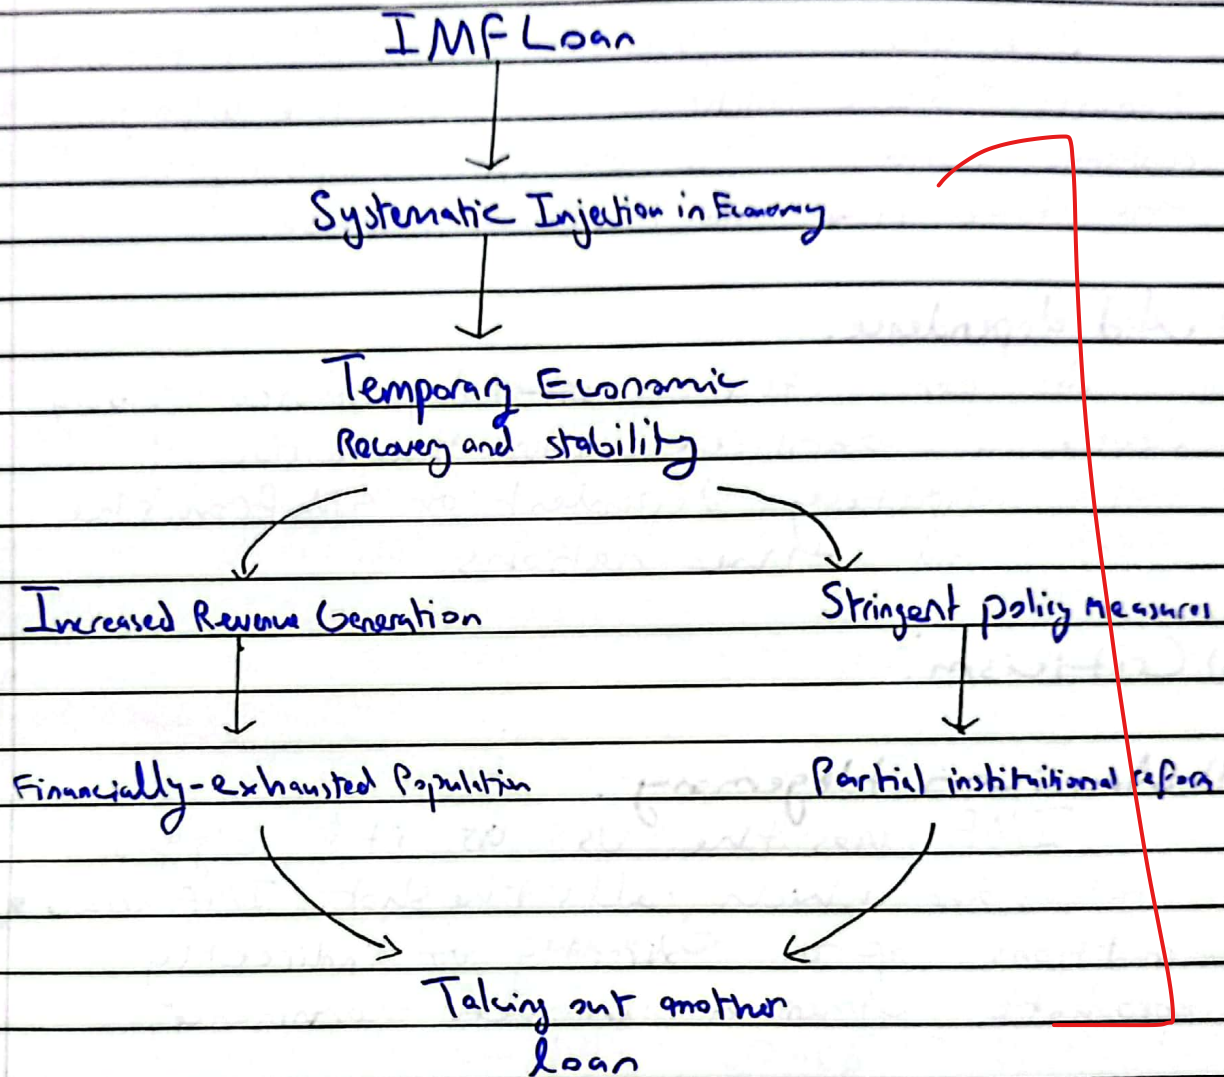 IMF Loan
Systematic Injection in Economy
Temporary Economic
Recovery and stability
Increased Revenue Generation
Stringent policy measures
Financially-exhausted Population
Partial instituitional reform
Taking out another
loan